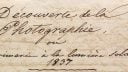 Découverte de la
Photographie
ou
imprimerie à la lumière solaire
1837